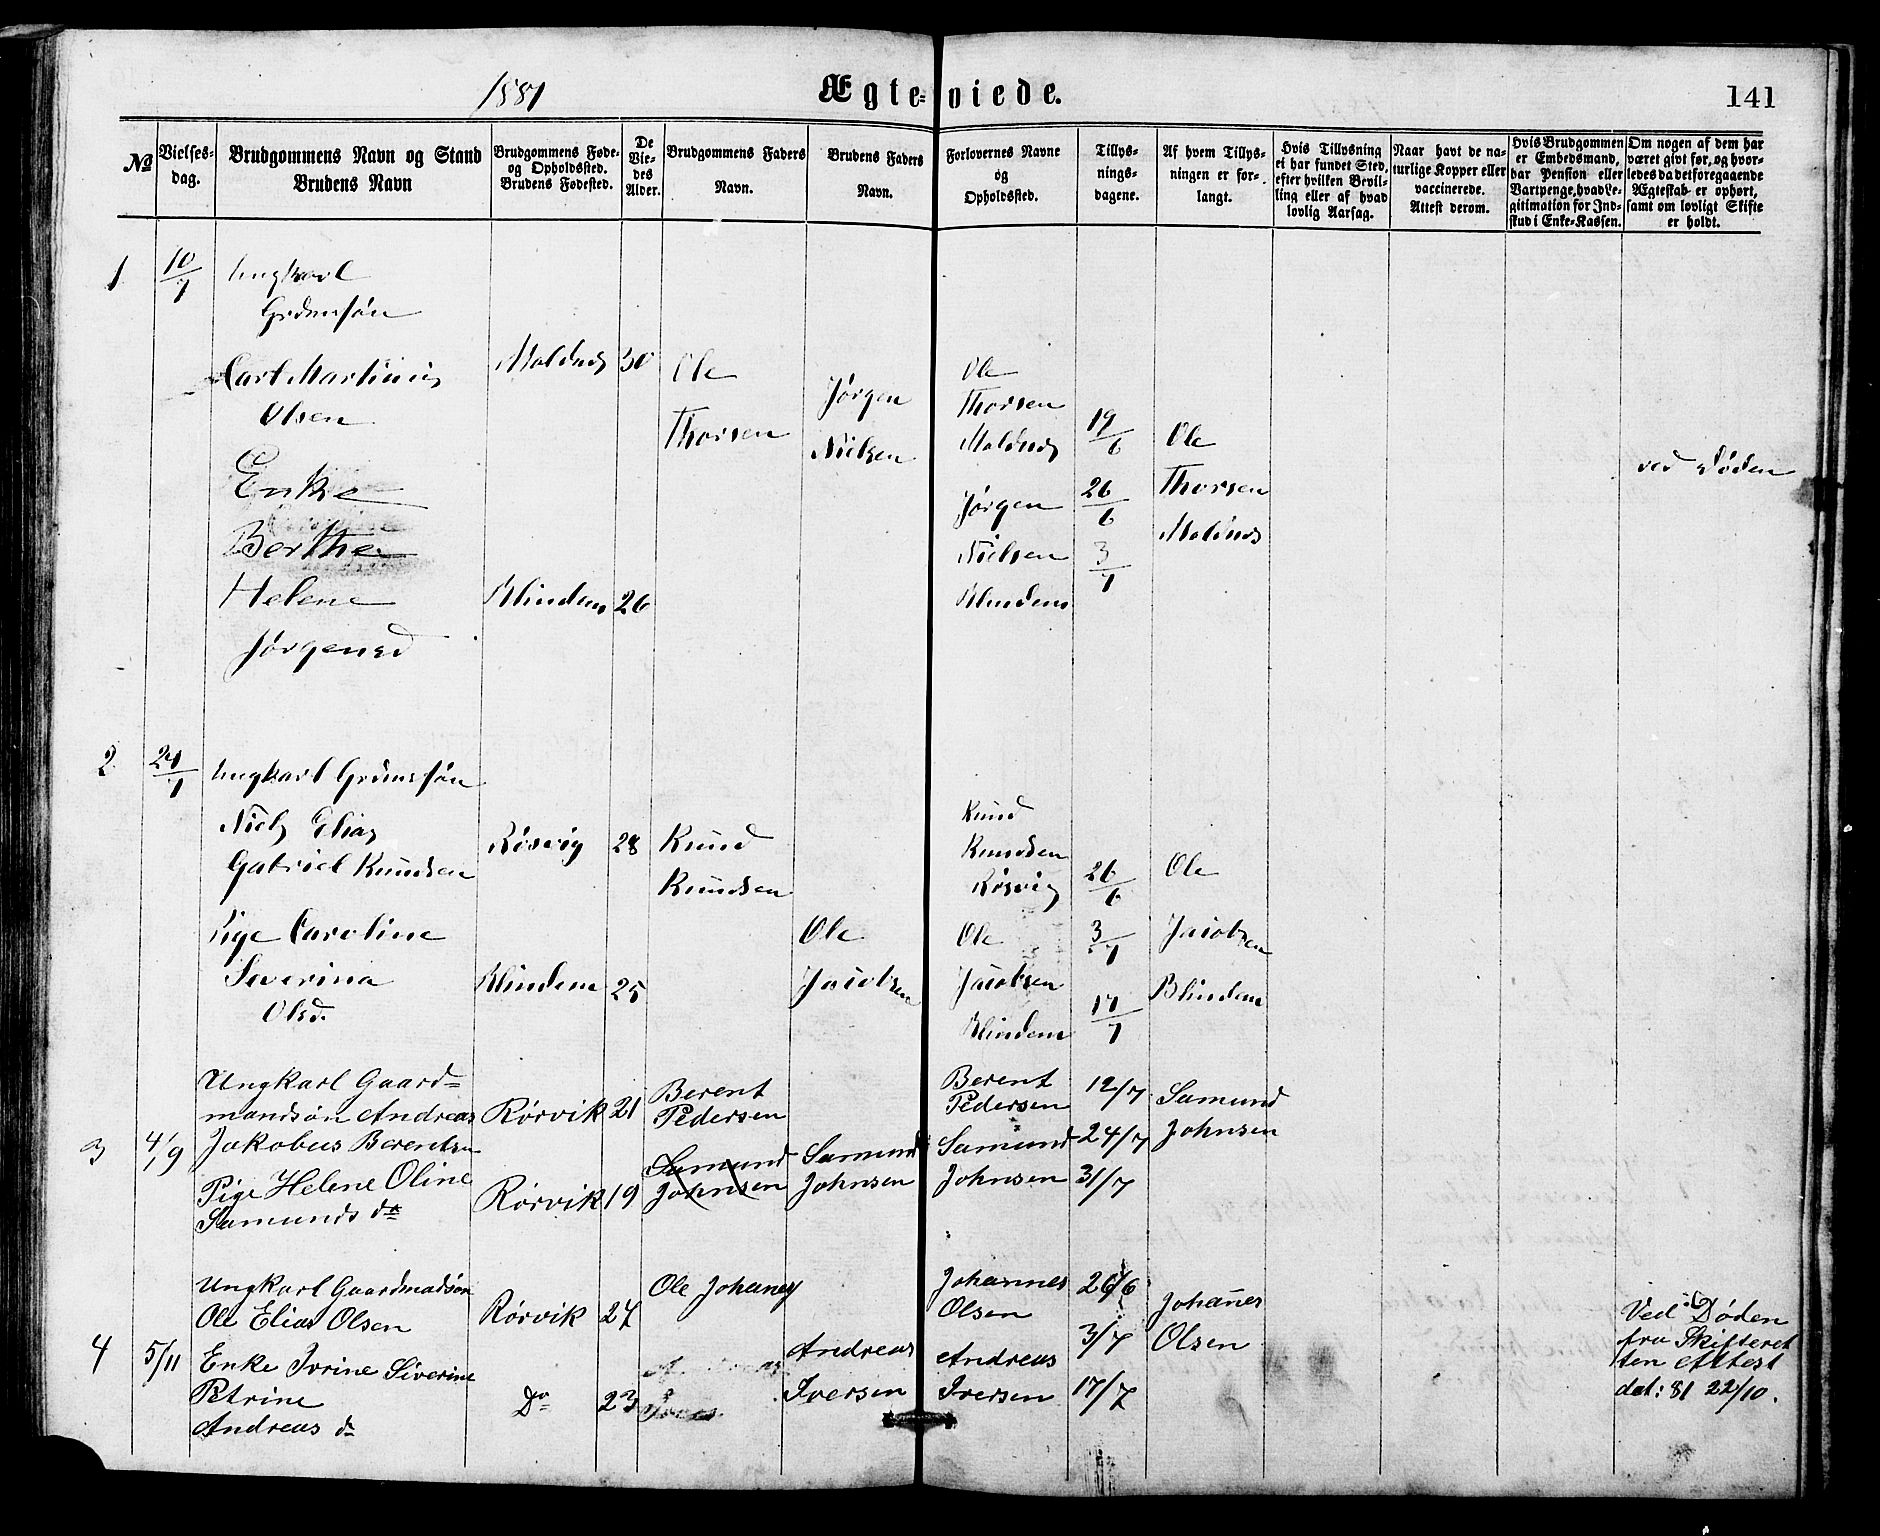 1881
Ægteviede.
141
No
Vielses-
dag.
Brudgommens Navn og Stand
Brudens Navn
Brudgommens Føde-
og Opholdssted.
Brudens Fødested.
De
Vie-
des
Alder.
Brudgommens Faders
Navn.
Brudens Faders
Navn.
Forlovernes Navne
og
Opholdssted.
Tillys-
nings-
dagene.
Af hvem Tillys-
ningen er for-
langt.
Hvis Tillysning
ei har fundet Sted,
efter hvilken Bevil-
ling eller af hvad
lovlig Aarsag.
Naar havt de na-
turlige Kopper eller
vaccinerede.
Attest derom.
Hvis Brudgommen
er Embedsmand,
har Pension eller
Vartpenge, hvad Le-
gitimation for Ind-
skud i Enke-Kassen.
Om nogen af dem har
været givt før, og hvor-
ledes da det foregaaende
Ægteskab er ophørt,
samt om lovligt Skifte
er holdt.
1
10/7
Ungkarl
Grdmsøn
Carl Martinius
Olsen
Moldnes
30
Ole
Thorsen
Jørgen
Nielsen
Ole
Thorsen
Moldnes
Jørgen
Nielsen
Blindem
19/6
26/6
3/7
Ole
Thorsen
Moldnes
ved Døden
Enke
Berthe
Helene
Jørgensd
Blindem
26
2
24/7
Ungkarl Grdmsøn
Niels Elias
Gabriel Knudsen
Røsvig
28
Knud
Knudsen
Knud
Knudsen
Røsvig
26/6
Ole
Pige Caroline
Severina
Olsd.
Blindem
25
Ole
Jacobsen
Ole
Jacobsen
Blindem
3/7
17/7
Jacobsen
Blindem
3
4/9
Ungkarl Gaard-
mandsøn Andreas
Jakobus Berentsen
Rørvik
21
Berent
Pedersen
Berent
Pedersen
12/7
24/7
31/7
Samund
Johnsen
Pige Helene Oline
Samunds da
Rørvik
19
Samund
Johnsen
Samund
Johnsen
Samund
Johnsen
4
5/11
Ungkarl Gaardmadsøn
Ole Elias Olsen
Rørvik
27
Ole Johanes
Johannes
Olsen
26/6
3/7
17/7
Johanes
Olsen
Enke Ivrine Siverine
Petrine
Andreas d
Do
23
Andreas
Iversen
Andreas
Iversen
Ved Døden
fra Skifteret
ten Attest
dat: 81 22/10.